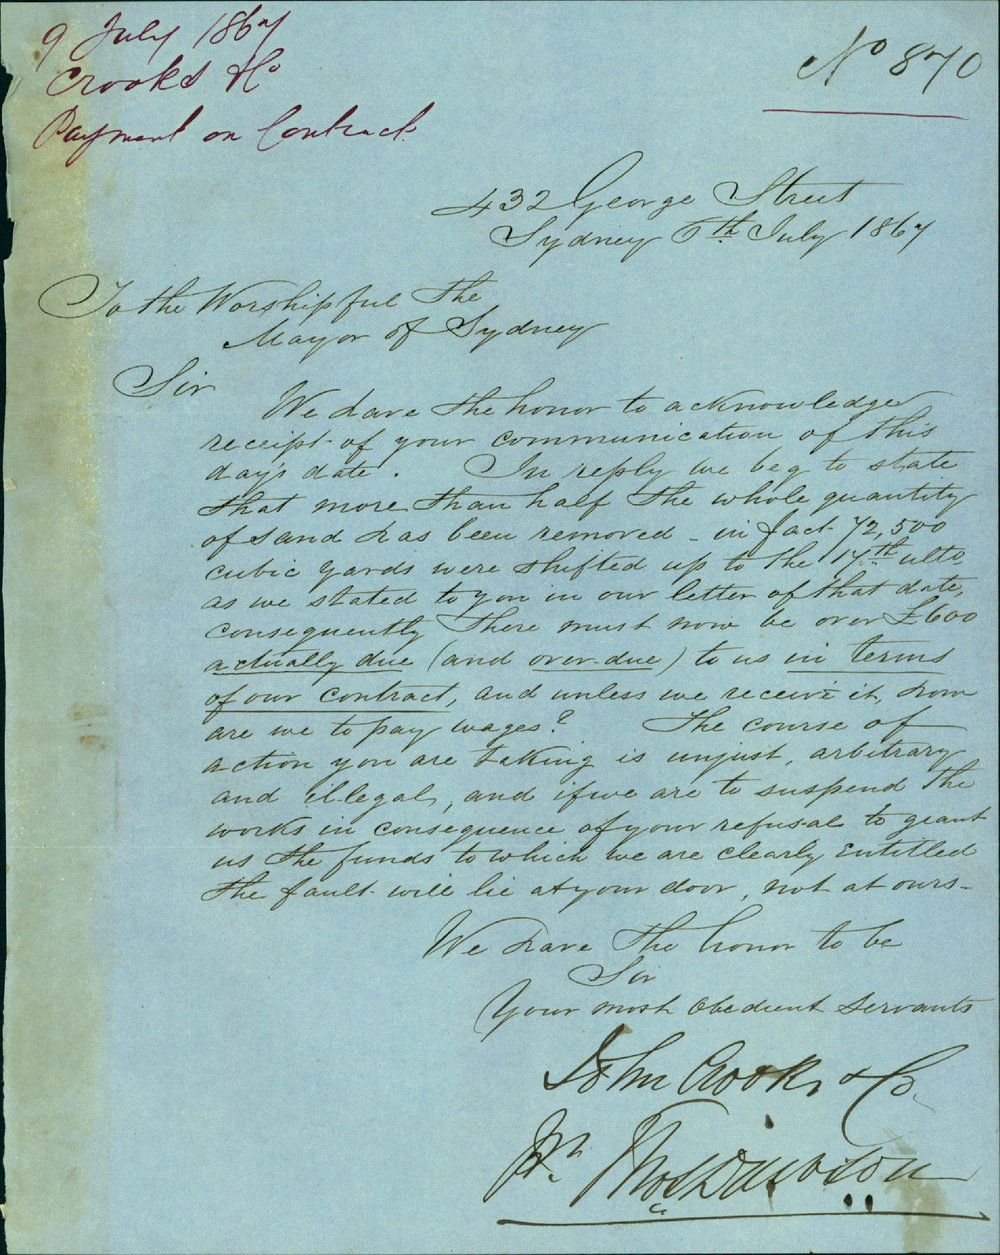 9 July 1867
Crooks & Co
Payment on Contract
No 870
432 George Street
Sydney 6th July 1867
To the Worshipful the
Mayor of Sydney
Sir
We have the honor to acknowledge
receipt of your communication of this
day's date. In reply we beg to state
that more than half the whole quantity
of sand has been removed - in fact 72,500
cubic yards were shifted up to the 17th ulto,
as we stated to you in our letter of that date,
consequently there must now be over £600
actually due (and over-due) to us in terms
of our contract, and unless we receive it, how
are we to pay wages? The course of
action you are taking is unjust, arbitrary
and illegal, and if we are to suspend the
works in consequence of your refusal to grant
us the funds to which we are clearly entitled
the fault will lie at your door, not at ours -
We have the honor to be
Sir
Your most obedient servants
John Crooks & Co.
Thos Davidson